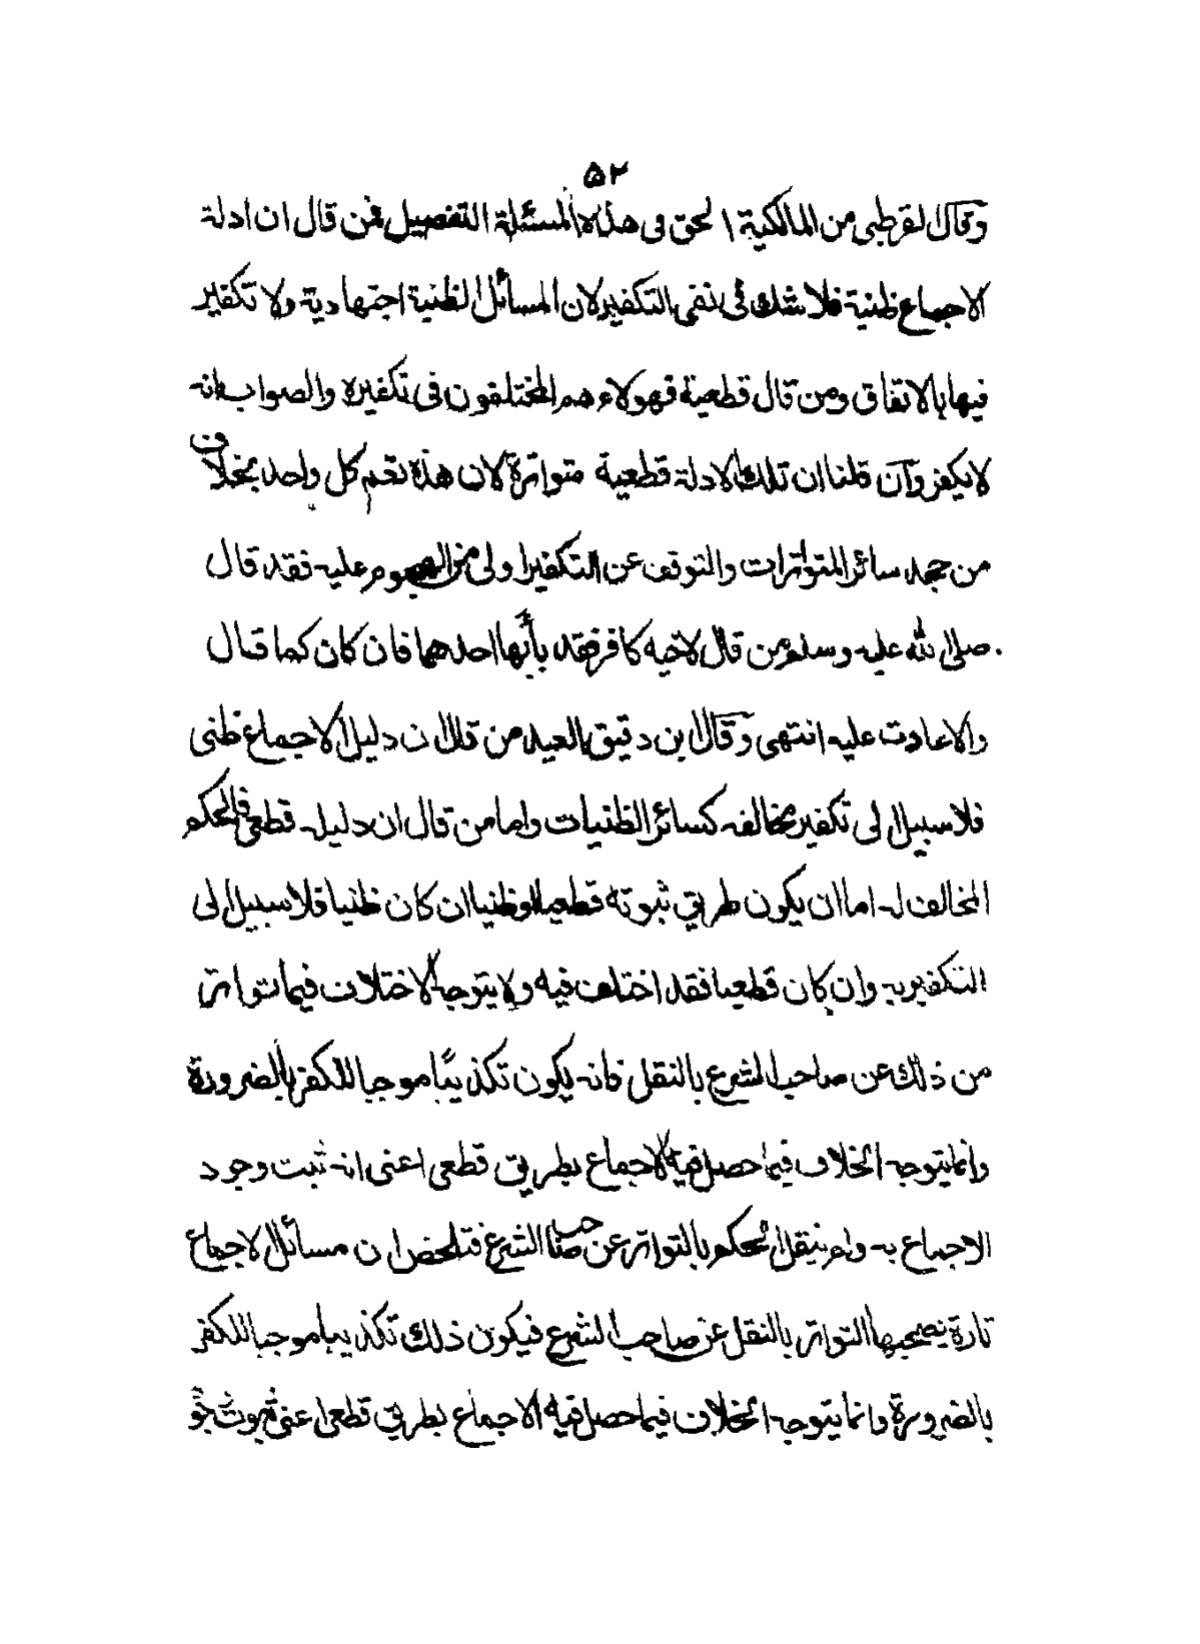 ۵۲
وقال القرطبى من المالكية الحق فى هذه المسئلة التفصيل فمن قال ان ادلة
الاجماع ظنية فلا شك فى نفى التكفير لان المسائل الظنية اجتهادية ولا تكفير
فيها بالاتفاق ومن قال قطعية فهولاء هم المختلفون فى تكفيره والصواب انه
لا يكفر وان قلنا ان تلك الادلة قطعية متواترة لان هذه تعم كل واحد بخلاف
من جحد سائر المتواترات والتوقف عن التكفير اولى من الهجوم عليه فقد قال
صلى الله عليه وسلم من قال لاخيه كافر فقد باء بها احدهما فان كان كما قال
والا عادت عليه انتهى وقال ابن دقيق العيد من قال ان دليل الاجماع ظنى
فلا سبيل الى تكفير مخالفه كسائر الظنيات واما من قال ان دليله قطعى فالحكم
المخالف له اما ان يكون طريق ثبوته قطعيا او ظنيا ان كان ظنيا فلا سبيل الى
التكفير به وان كان قطعيا فقد اختلف فيه ولا يتوجه الاختلاف فيما تواتر
من ذلك عن صاحب الشرع بالنقل فانه يكون تكذيبًا موجبا للكفر بالضرورة
وانما يتوجه الخلاف فيما حصل فيه الاجماع بطريق قطعى اعنى انه ثبت وجود
الاجماع به ولم ينقل الحكم بالتواتر عن صاحب الشرع فتلخص ان مسائل الاجماع
تارة يصحبها التواتر بالنقل عن صاحب الشرع فيكون ذلك تكذيبا موجبا للكفر
بالضرورة وانما يتوجه الخلاف فيما حصل فيه الاجماع بطريق قطعى اعنى ثبوت